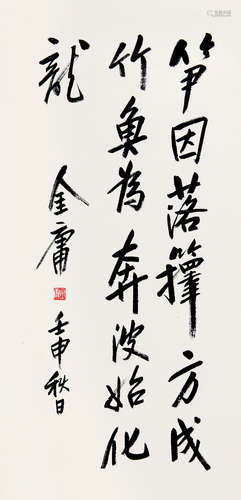 笋因落籜方成
竹魚為奔波始化
龍
金庸
壬申秋日